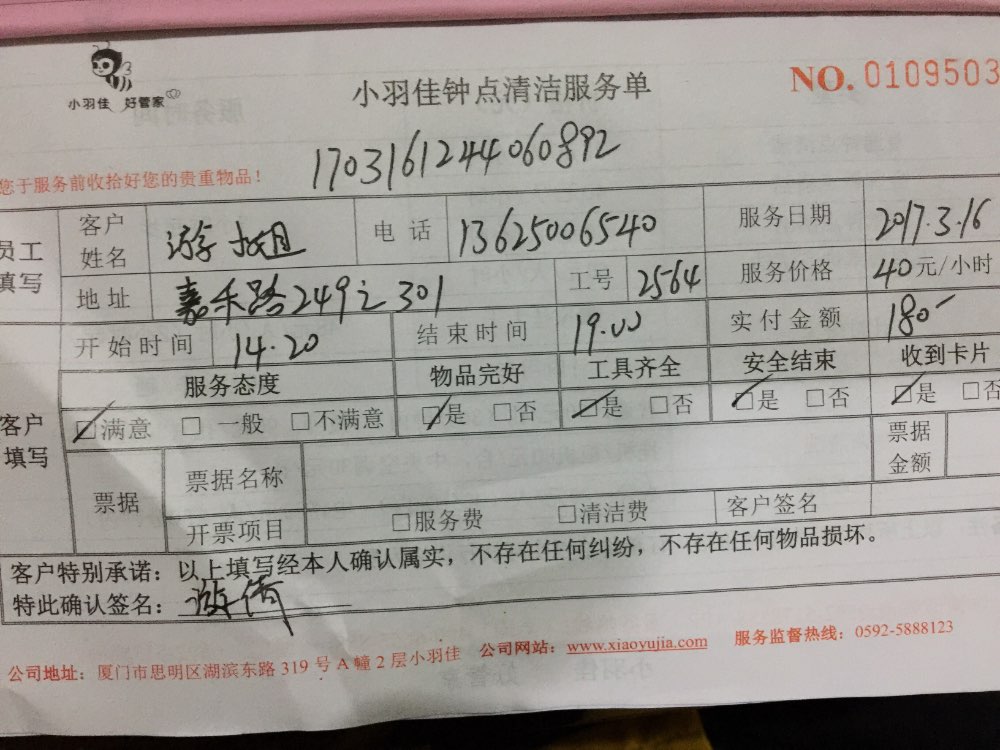 小羽佳 好管家
小羽佳钟点清洁服务单
NO. 0109503
1703161244060892
您于服务前收拾好您的贵重物品！
员工填写 客户姓名 游小姐 电话 13625006540 服务日期 2017.3.16
地址 嘉禾路249之301 工号 2564 服务价格 40元/小时
开始时间 14.20 结束时间 19.00 实付金额 180-
客户填写 服务态度 物品完好 工具齐全 安全结束 收到卡片
☑满意 □一般 □不满意 ☑是 □否 ☑是 □否 ☑是 □否 ☑是 □否
票据 票据名称 票据金额
开票项目 □服务费 □清洁费 客户签名
客户特别承诺：以上填写经本人确认属实，不存在任何纠纷，不存在任何物品损坏。
特此确认签名：游倩
公司地址：厦门市思明区湖滨东路 319 号 A 幢 2 层小羽佳 公司网站：www.xiaoyujia.com 服务监督热线：0592-5888123